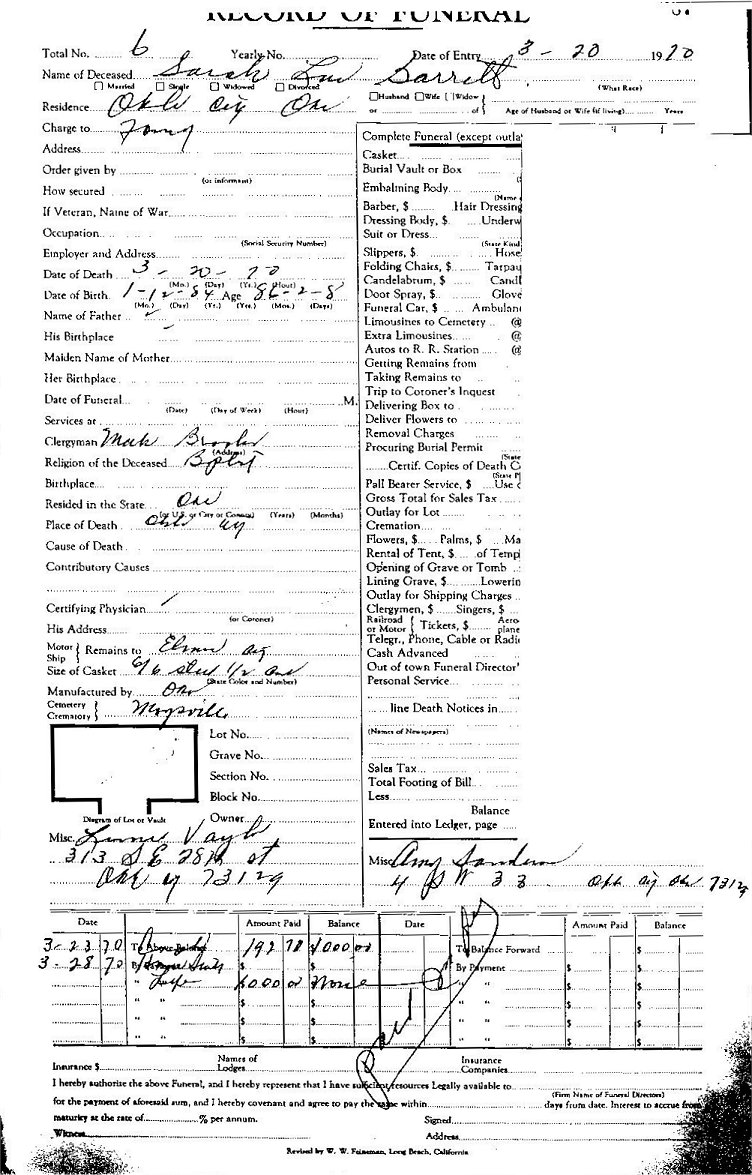 RECORD OF FUNERAL
Total No. 6 Yearly No. Date of Entry 3 - 20 1970
Name of Deceased Sarah Barrett (What Race)
Married Single Widowed Divorced Husband Wife Widow
Residence Okla City Okl or of Age of Husband or Wife (if living) Years
Charge to
Address
Order given by
(or informant)
How secured
If Veteran, Name of War
Occupation
(Social Security Number)
Employer and Address
Date of Death 3 - 20 - 70
(Mo.) (Day) (Yr.) (Hour)
Date of Birth 1-12-84 Age 86-2-8
(Mo.) (Day) (Yr.) (Yrs.) (Mos.) (Days)
Name of Father
His Birthplace
Maiden Name of Mother
Her Birthplace
Date of Funeral M.
(Date) (Day of Week) (Hour)
Services at
Clergyman
(Address)
Religion of the Deceased Baptist
Birthplace
Resided in the State
(or U.S. or City or County) (Years) (Months)
Place of Death Okla City
Cause of Death
Contributory Causes
Certifying Physician
(or Coroner)
His Address
Motor Ship Remains to Elmore City
Size of Casket 6/6 Steel 1/2
(State Color and Number)
Manufactured by
Cemetery Crematory Maysville
Lot No.
Grave No.
Section No.
Block No.
Owner
Diagram of Lot or Vault
Misc.
313 S E 28th St
73129
Complete Funeral (except outla
Casket
Burial Vault or Box
Embalming Body
(Name
Barber, $ Hair Dressing
Dressing Body, $ Underw
Suit or Dress
(State Kind
Slippers, $ Hose
Folding Chairs, $ Tarpau
Candelabrum, $ Candl
Door Spray, $ Glove
Funeral Car, $ Ambulan
Limousines to Cemetery @
Extra Limousines @
Autos to R. R. Station @
Getting Remains from
Taking Remains to
Trip to Coroner's Inquest
Delivering Box to
Deliver Flowers to
Removal Charges
Procuring Burial Permit
(State
Certif. Copies of Death C
(State P
Pall Bearer Service, $ Use
Gross Total for Sales Tax
Outlay for Lot
Cremation
Flowers, $ Palms, $ Ma
Rental of Tent, $ of Temp
Opening of Grave or Tomb
Lining Grave, $ Lowerin
Outlay for Shipping Charges
Clergymen, $ Singers, $
Railroad or Motor Tickets, $ Aero-plane
Telegr., Phone, Cable or Radi
Cash Advanced
Out of town Funeral Director'
Personal Service
line Death Notices in
(Names of Newspapers)
Sales Tax
Total Footing of Bill
Less
Balance
Entered into Ledger, page
Misc Amy Sanders
73129
Date Amount Paid Balance Date Amount Paid Balance
3-23 70 To Above Balance 192 78 1000 00 To Balance Forward $
3-28 70 By $ By Payment $ $
" 1000 00 None " " $ $
" " $ $ " " $ $
" " $ $ " " $ $
" " $ $ " " $ $
paid
Insurance $ Names of Lodges Insurance Companies
I hereby authorize the above Funeral, and I hereby represent that I have sufficient resources Legally available to
(Firm Name of Funeral Directors)
for the payment of aforesaid sum, and I hereby covenant and agree to pay the same within days from date. Interest to accrue from
maturity at the rate of % per annum. Signed
Witness Address
Revised by W. W. Feineman, Long Beach, California